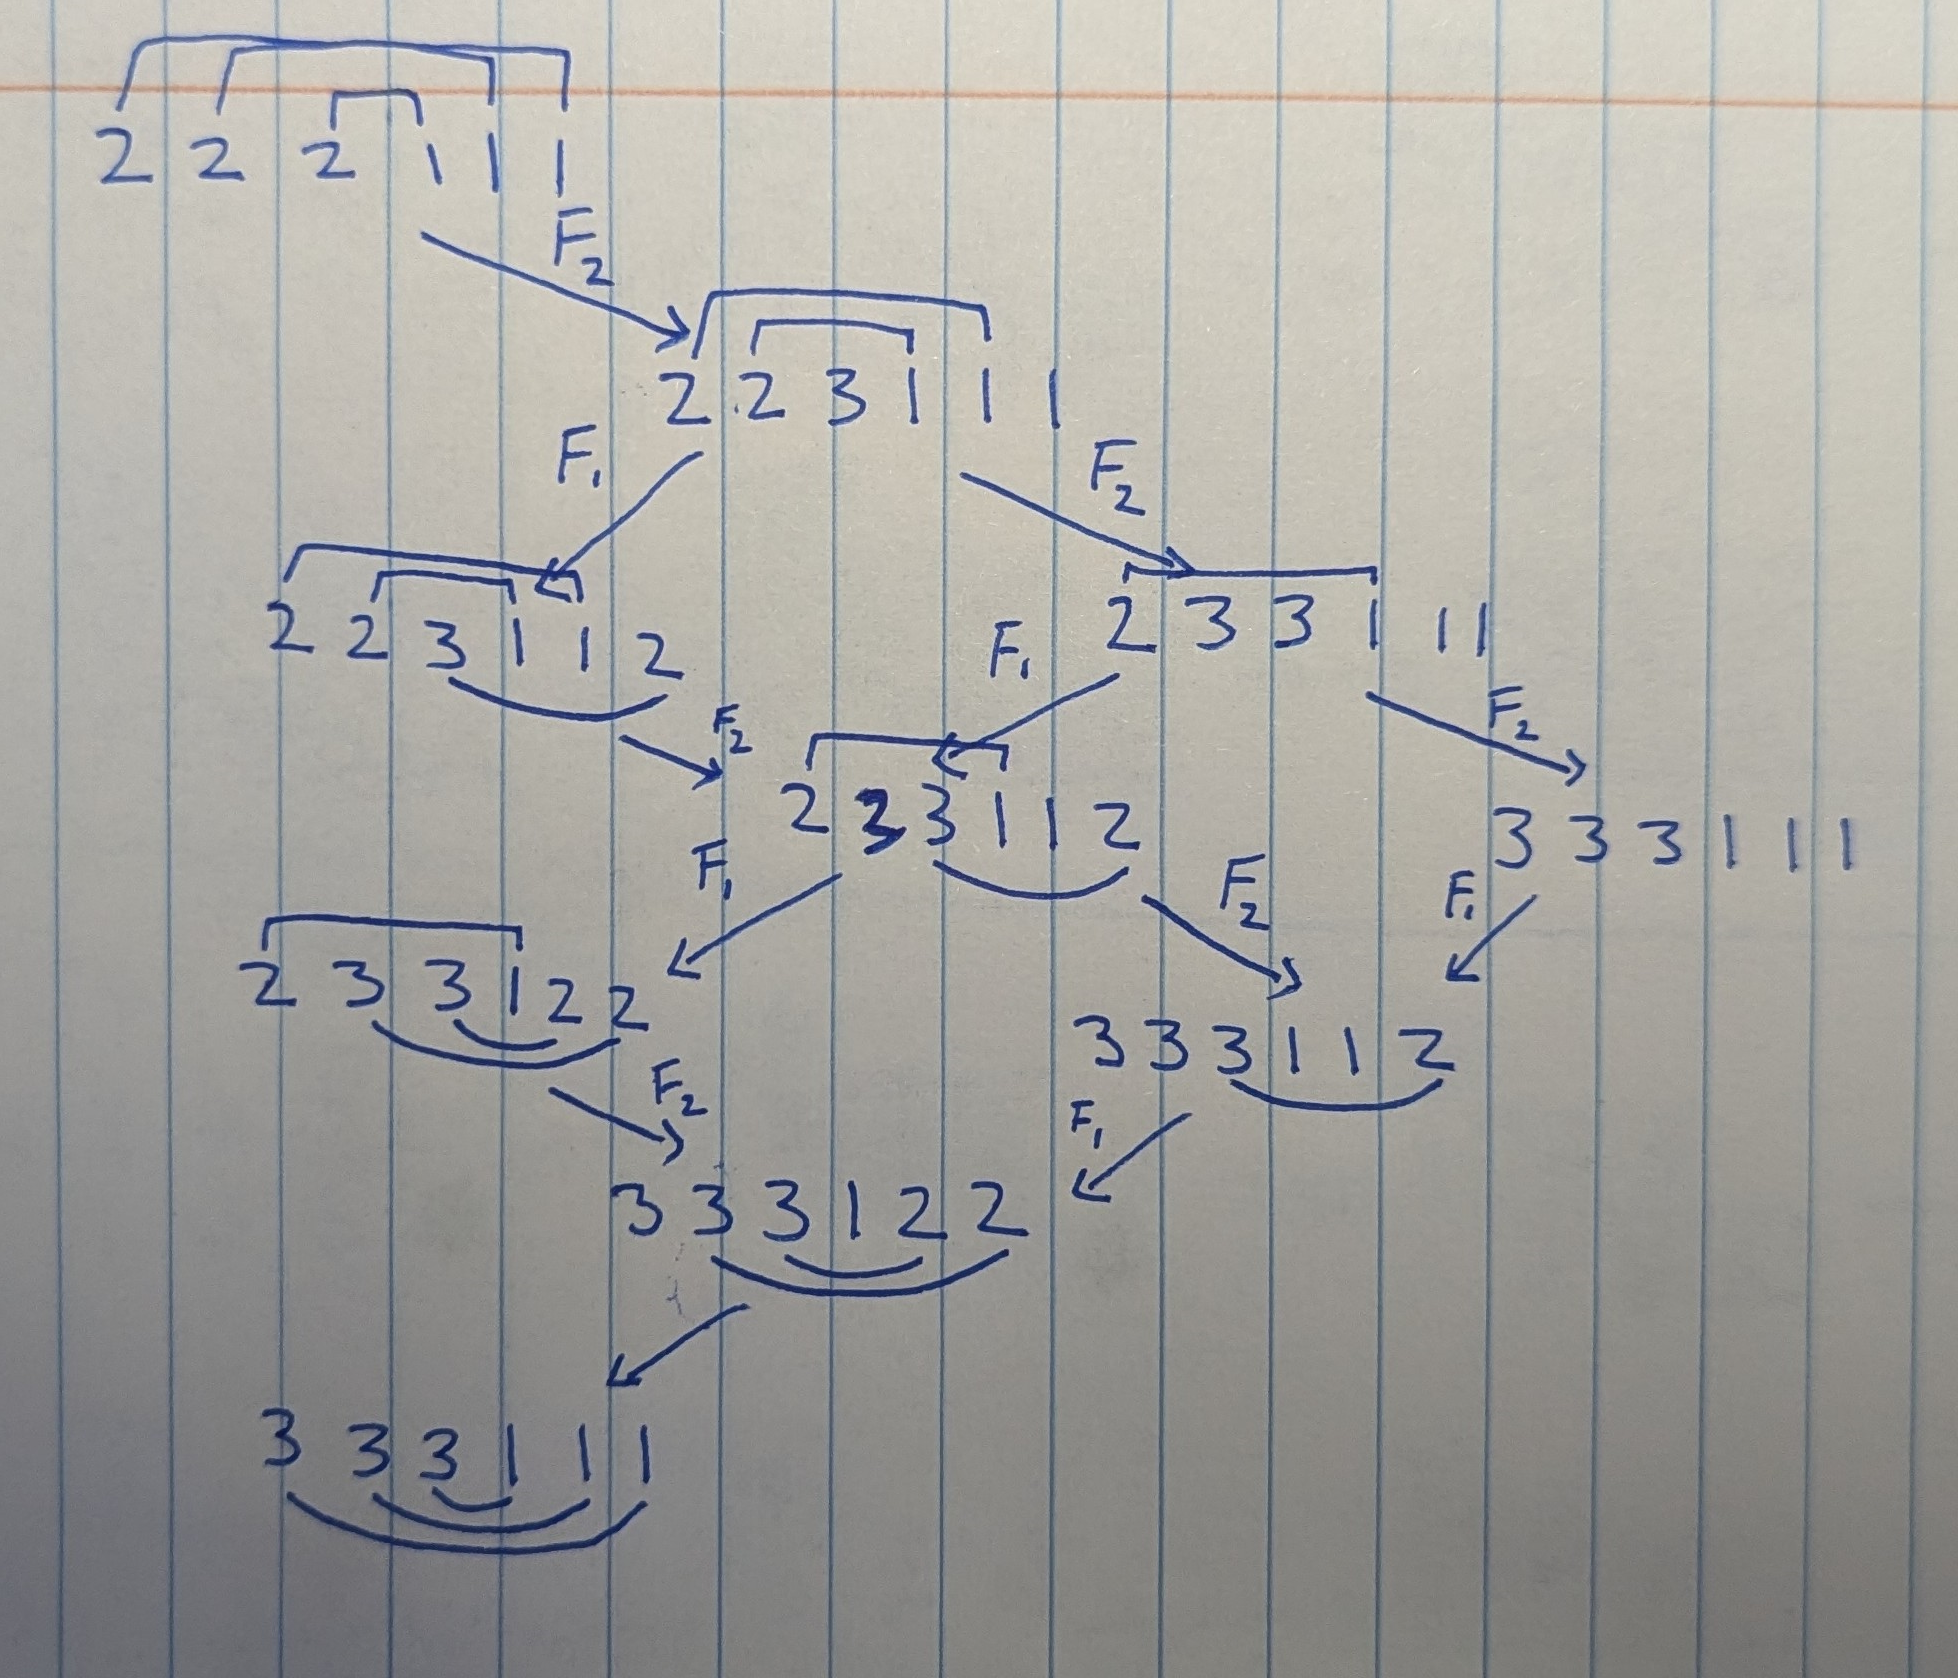 2 2 2 1 1 1
F₂
2 2 3 1 1 1
F₁ F₂
2 2 3 1 1 2
2 3 3 1 1 1
F₁
F₂ F₂
2 3 3 1 1 2
3 3 3 1 1 1
F₁ F₂ F₁
2 3 3 1 2 2
3 3 3 1 1 2
F₂ F₁
3 3 3 1 2 2
3 3 3 1 1 1